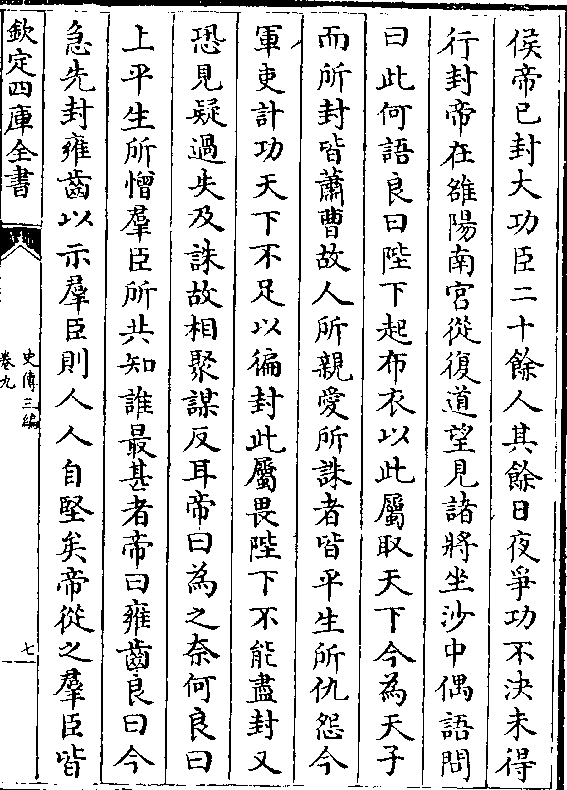 侯帝已封大功臣二十餘人其餘日夜爭功不決未得
行封帝在雒陽南宮從復道望見諸將坐沙中偶語問
曰此何語良曰陛下起布衣以此屬取天下今為天子
而所封皆蕭曹故人所親愛所誅者皆平生所仇怨今
軍吏計功天下不足以徧封此屬畏陛下不能盡封又
恐見疑過失及誅故相聚謀反耳帝曰為之奈何良曰
上平生所憎羣臣所共知誰最甚者帝曰雍齒良曰今
急先封雍齒以示羣臣則人人自堅矣帝從之羣臣皆
欽定四庫全書
史傳三編
卷九
七